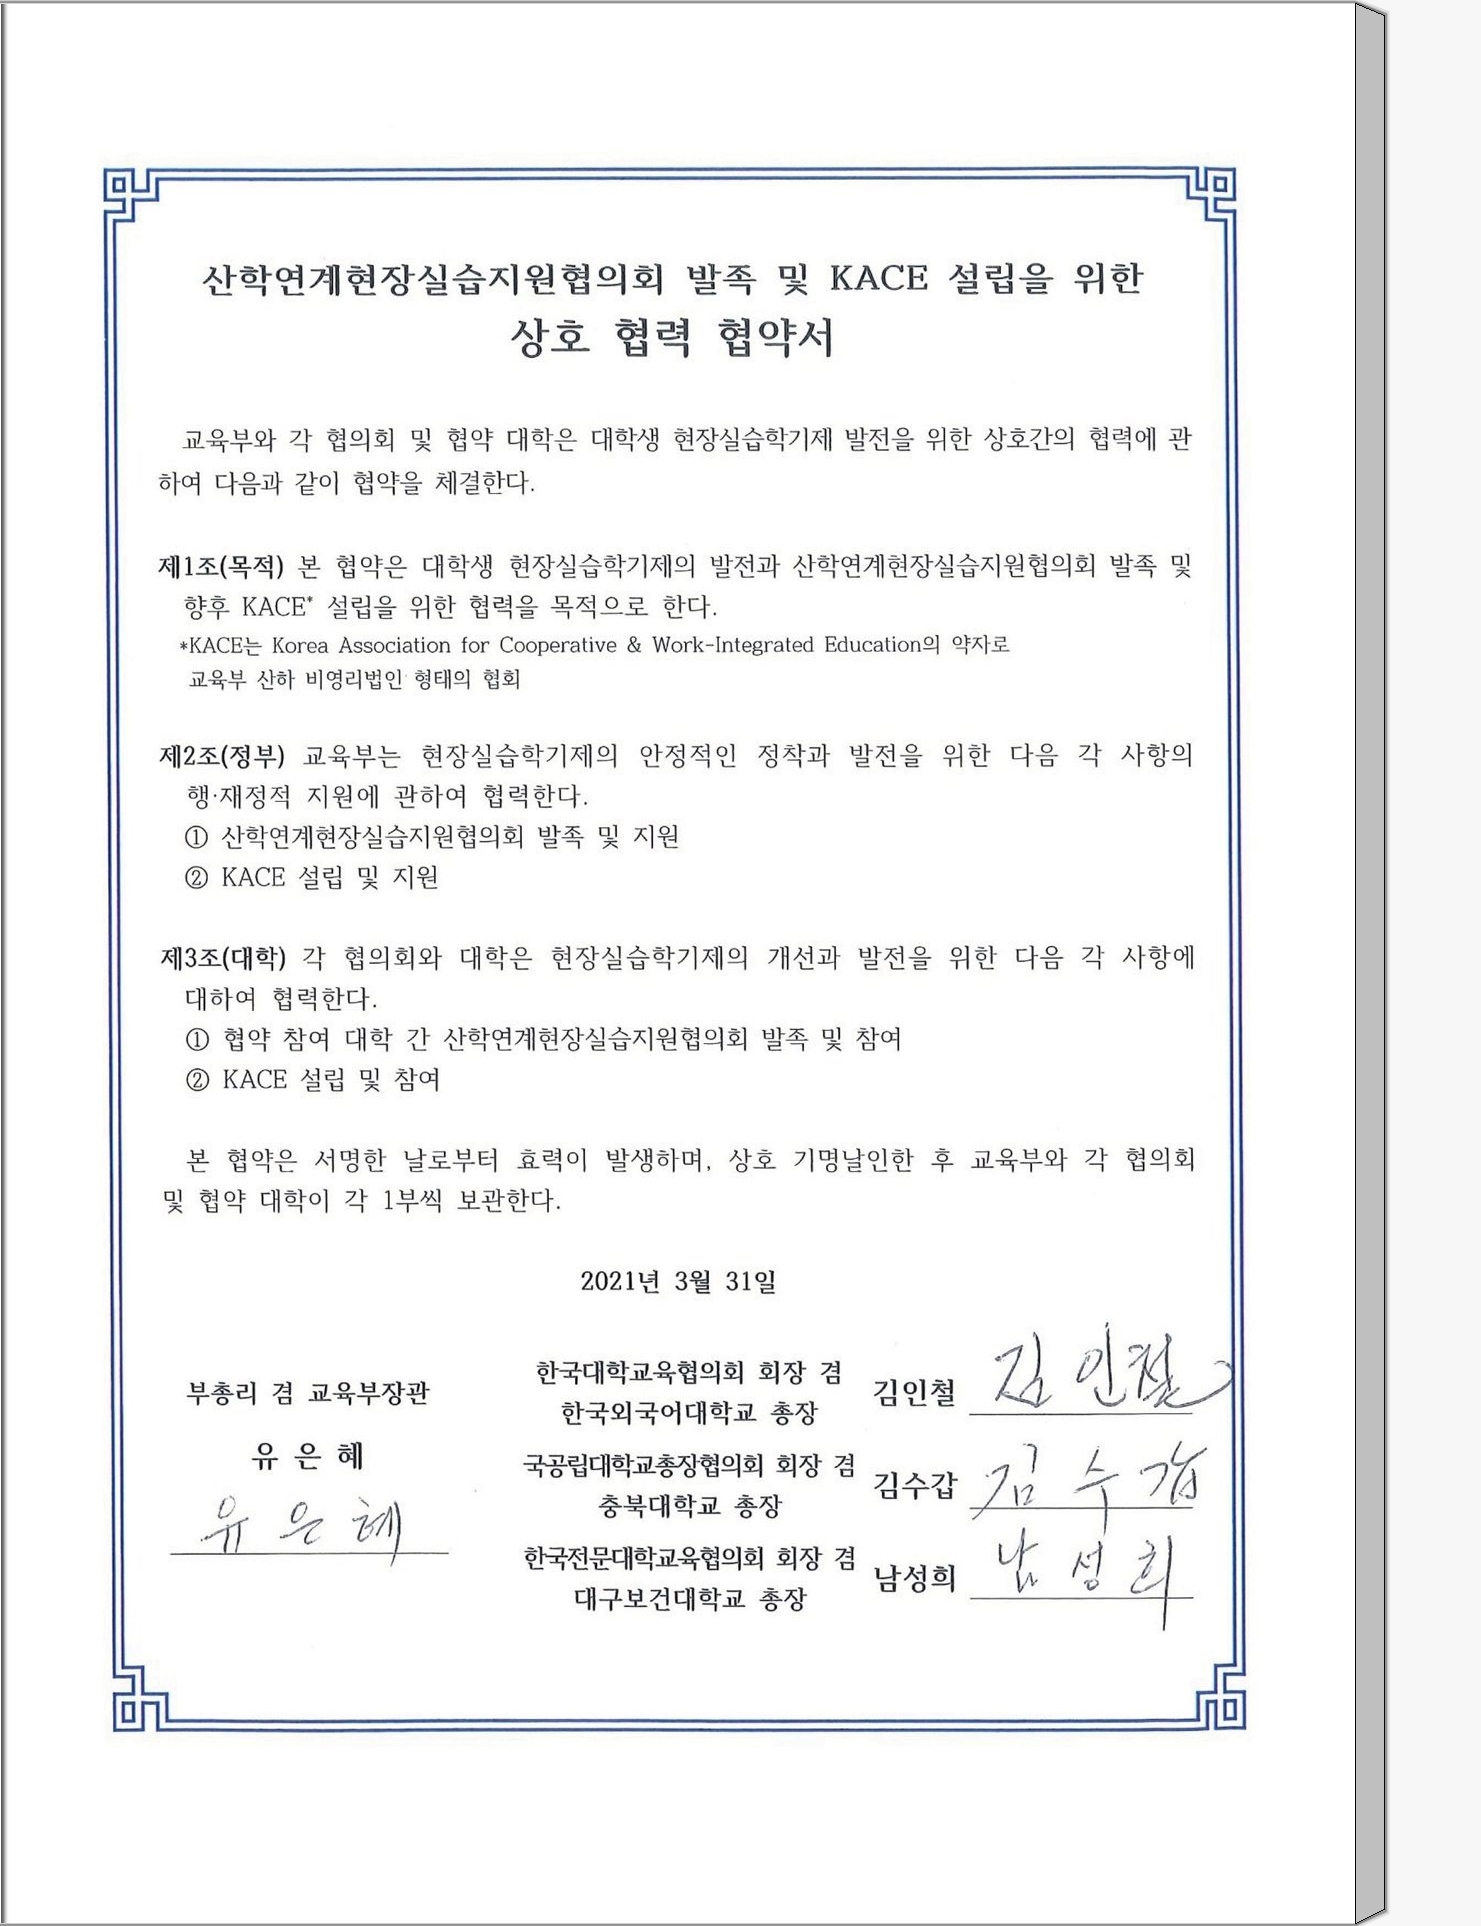 산학연계현장실습지원협의회 발족 및 KACE 설립을 위한
상호 협력 협약서
교육부와 각 협의회 및 협약 대학은 대학생 현장실습학기제 발전을 위한 상호간의 협력에 관
하여 다음과 같이 협약을 체결한다.
제1조(목적) 본 협약은 대학생 현장실습학기제의 발전과 산학연계현장실습지원협의회 발족 및
향후 KACE* 설립을 위한 협력을 목적으로 한다.
*KACE는 Korea Association for Cooperative & Work-Integrated Education의 약자로
교육부 산하 비영리법인 형태의 협회
제2조(정부) 교육부는 현장실습학기제의 안정적인 정착과 발전을 위한 다음 각 사항의
행·재정적 지원에 관하여 협력한다.
① 산학연계현장실습지원협의회 발족 및 지원
② KACE 설립 및 지원
제3조(대학) 각 협의회와 대학은 현장실습학기제의 개선과 발전을 위한 다음 각 사항에
대하여 협력한다.
① 협약 참여 대학 간 산학연계현장실습지원협의회 발족 및 참여
② KACE 설립 및 참여
본 협약은 서명한 날로부터 효력이 발생하며, 상호 기명날인한 후 교육부와 각 협의회
및 협약 대학이 각 1부씩 보관한다.
2021년 3월 31일
부총리 겸 교육부장관
유 은 혜
유 은 혜
한국대학교육협의회 회장 겸
한국외국어대학교 총장
김인철 김 인 철
국공립대학교총장협의회 회장 겸
충북대학교 총장
김수갑 김 수 갑
한국전문대학교육협의회 회장 겸
대구보건대학교 총장
남성희 남 성 희